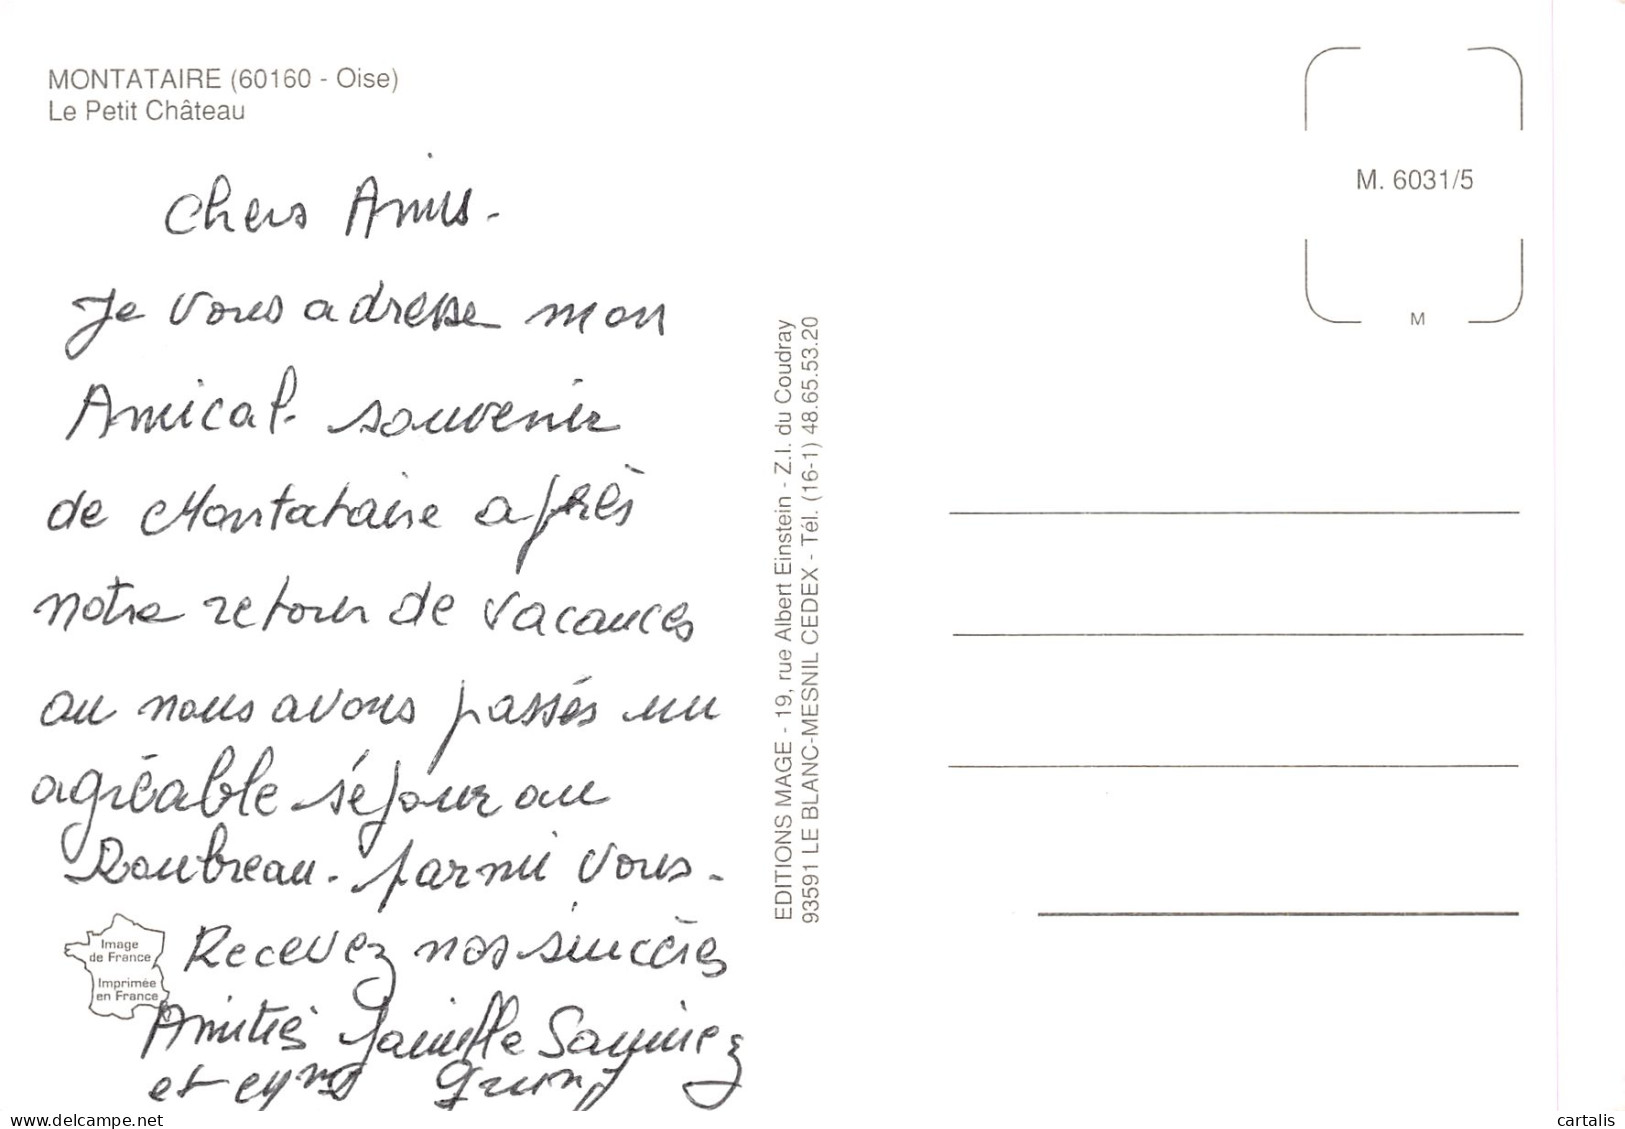 MONTATAIRE (60160 - Oise)
Le Petit Château
Chers Amis -
Je vous adresse mon
Amical souvenir
de Montataire après
notre retour de vacances
ou nous avons passés un
agréable séjour au
Roubreau. parmi vous.
Recevez nos sincères
Amitiés famille Saminez
et
Image
de France
Imprimée
en France
EDITIONS MAGE - 19, rue Albert Einstein - Z.I. du Coudray
93591 LE BLANC-MESNIL CEDEX - Tél. (16-1) 48.65.53.20
M. 6031/5
M
delcampe.net
cartalis